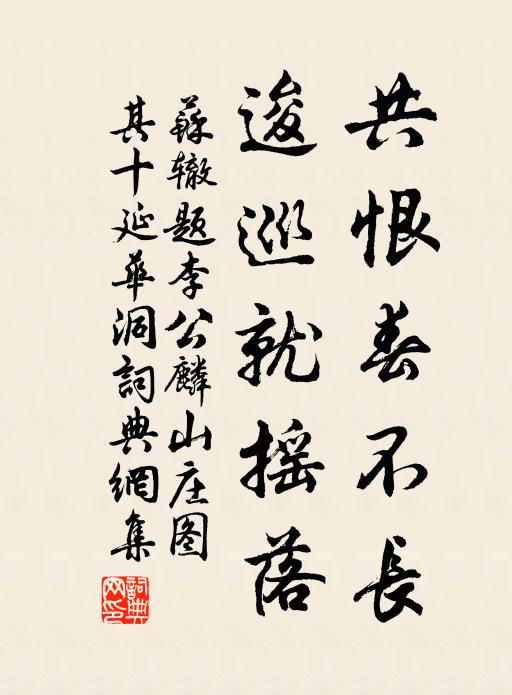 共恨春不長
逡巡就摇落
蘇辙题李公麟山庄图
其十延華洞詞典網集
詞典网印